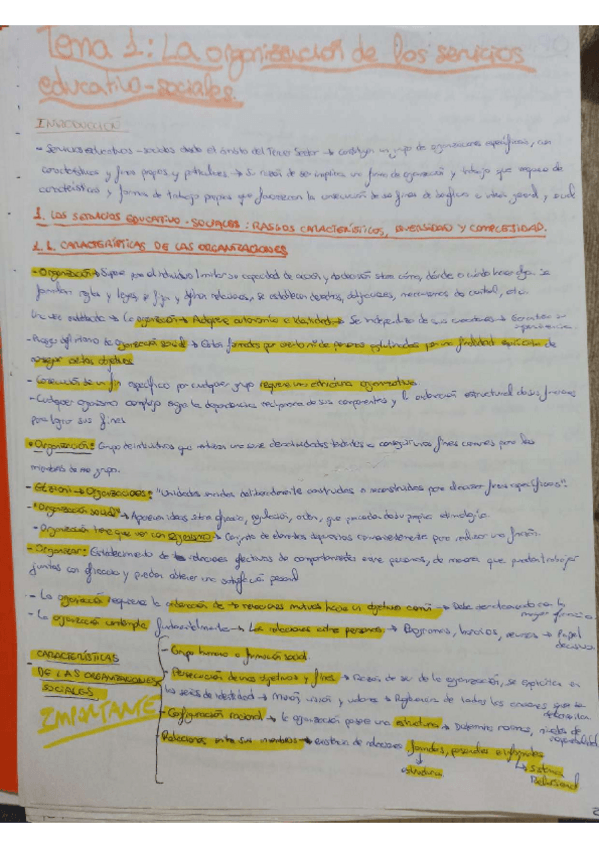 Tema 1: La organización de los servicios
educativo-sociales.
INTRODUCCIÓN
- Servicios educativos-sociales desde el ámbito del Tercer Sector → constituyen un grupo de organizaciones específicas, con
características y fines propios y particulares → Su razón de ser implica una forma de organización y trabajo que requiere de
características y forma de trabajo propias que favorezcan la consecución de sus fines de beneficio o interés general, y social
1. LOS SERVICIOS EDUCATIVO-SOCIALES: RASGOS CARACTERÍSTICOS, DIVERSIDAD Y COMPLEJIDAD.
1.1. CARACTERÍSTICAS DE LAS ORGANIZACIONES
- Organización → Supone para el individuo limitar su capacidad de acción y decisión sobre cómo, dónde o cuándo hacer algo. Se
formulan reglas y leyes, se fijan y definen relaciones, se establecen derechos, obligaciones, mecanismos de control, etc.
Una vez establecida → La organización → Adquiere autonomía e identidad → Se independiza de sus creadores →
- Rasgo definitorio de organización social → Están formadas por un conjunto de personas aglutinadas por una finalidad específica: de
conseguir ciertos objetivos
- Consecución de un fin específico por cualquier grupo requiere una estructura organizativa
- Cualquier organismo complejo exige la dependencia recíproca de sus componentes y la ordenación estructural de sus funciones
para lograr sus fines
- Organización: Grupo de individuos que realizan una serie de actividades tendentes a conseguir unos fines comunes para los
miembros de ese grupo.
- Etzioni → Organizaciones: "Unidades sociales deliberadamente construidas o reconstruidas para alcanzar fines específicos".
- "Organización social" → Aparecen ideas sobre eficacia, regulación, orden, que proceden de su propia etimología.
- Organización tiene que ver con organismo → Conjunto de elementos dispuestos convenientemente para realizar una función.
- Organizar: Establecimiento de relaciones efectivas de comportamiento entre personas, de manera que puedan trabajar
juntas con eficacia y puedan obtener una satisfacción personal
- La organización requiere la ordenación de relaciones mutuas hacia un objetivo común → Debe
- La organización contempla fundamentalmente → Las relaciones entre personas → Programas, horarios, recursos → Papel
decisivo
CARACTERÍSTICAS
DE LAS ORGANIZACIONES
SOCIALES
IMPORTANTE
- Grupo humano o formación social.
- Persecución de unos objetivos y fines → Razón de ser de la organización, se explicita en
las señas de identidad → Misión, visión y valores →
- Configuración racional → la organización posee una estructura → Determina normas, niveles de
responsabilidad
- Relaciones entre sus miembros → existencia de relaciones
estructura
↳ Sistema
Relacional
2